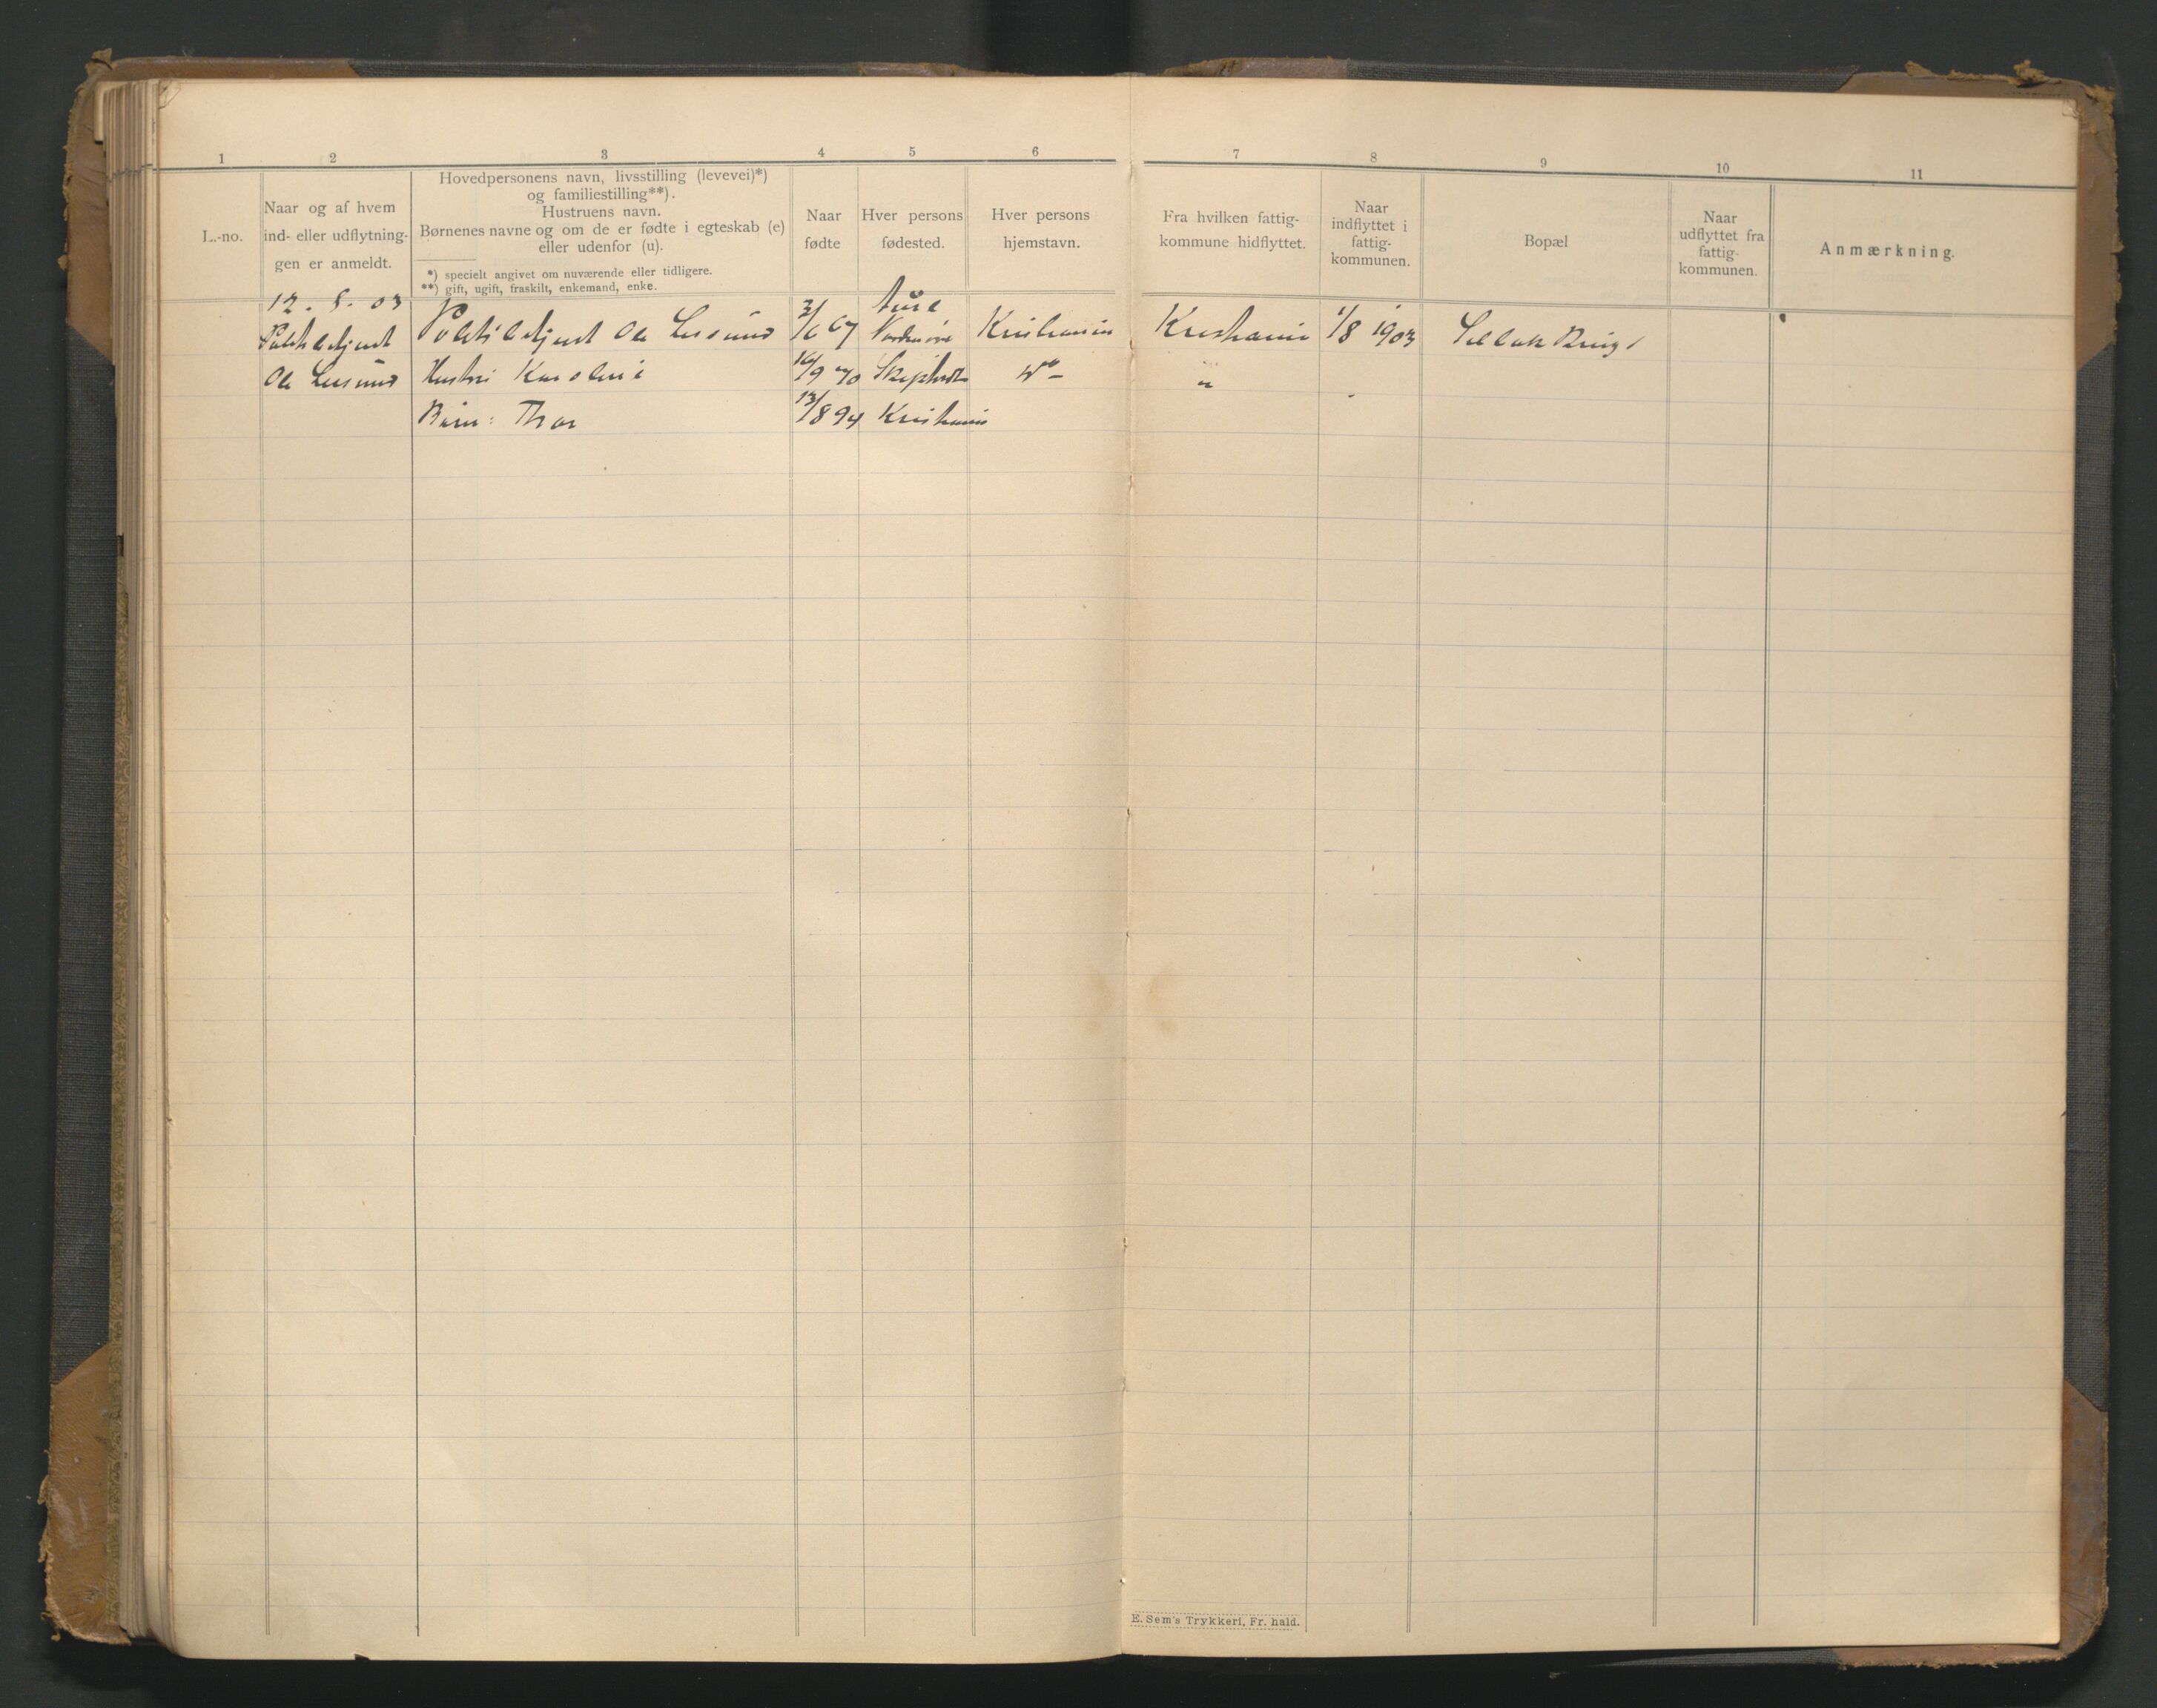 1 2 3 4 5 6 7 8 9 10 11
L.-no.
Naar og af hvem
ind- eller udflytnin-
gen er anmeldt.
Hovedpersonens navn, livsstilling (levevei)*)
og familiestilling**).
Hustruens navn.
Børnenes navne og om de er fødte i egteskab (e)
eller udenfor (u).
*) specielt angivet om nuværende eller tidligere.
**) gift, ugift, fraskilt, enkemand, enke.
Naar
fødte
Hver persons
fødested.
Hver persons
hjemstavn.
Fra hvilken fattig-
kommune hidflyttet.
Naar
indflyttet i
fattig-
kommunen.
Bopæl
Naar
udflyttet fra
fattig-
kommunen.
Anmærkning.
12. 8. 03 Aure
Politibetjent Politibetjent Ole Lesund 2/6 67 Nordmøre Kristiania Kristiania 1/8 1903
Ole Lesund Hustru Karoline 16/9 70 Skiptvedt Do "
Barn: Thor 13/8 94 Kristiania
E. Sem's Trykkeri, Fr. hald.